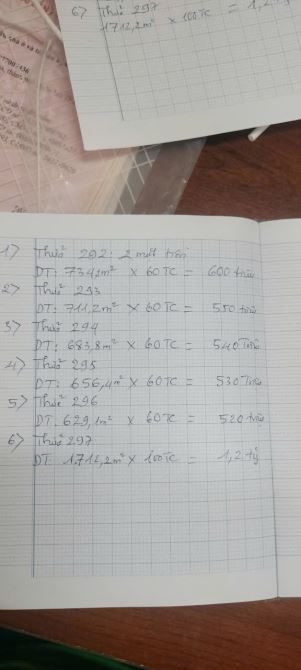 6) Thửa 297
1712,2m² x 100TC = 1,2 tỷ
1) Thửa 292: 2 mặt tiền
DT: 734,1m² x 60TC = 600 triệu
2) Thửa 293
DT: 711,2m² x 60TC = 550 triệu
3) Thửa 294
DT: 683,8m² x 60TC = 540 Triệu
4) Thửa 295
DT: 656,4m² x 60TC = 530 Triệu
5) Thửa 296
DT: 629,1m² x 60TC = 520 triệu
6) Thửa 297
DT: 1712,2m² x 100TC = 1,2 tỷ